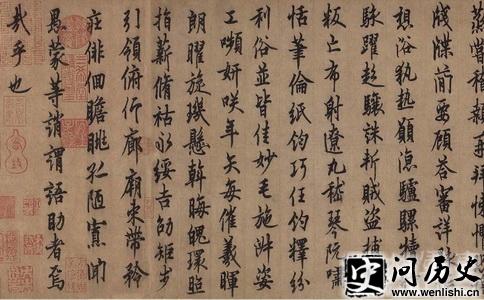 蒸嘗稽顙再拜悚懼
牋牒簡要顧答審詳
想浴執熱願涼驢騾犢
駭躍超驤誅斬賊盜捕
叛亡布射遼丸嵇琴阮嘯
恬筆倫紙鈞巧任釣釋紛
利俗並皆佳妙毛施淑姿
工嚬妍咲年矢每催羲暉
朗曜旋璣懸斡晦魄環照
指薪脩祜永綏吉劭矩步
引領俯仰廊廟束帶矜
莊徘徊瞻眺孤陋寡聞
愚蒙等誚謂語助者焉
哉乎也
史问历史
www.wenlishi.cn